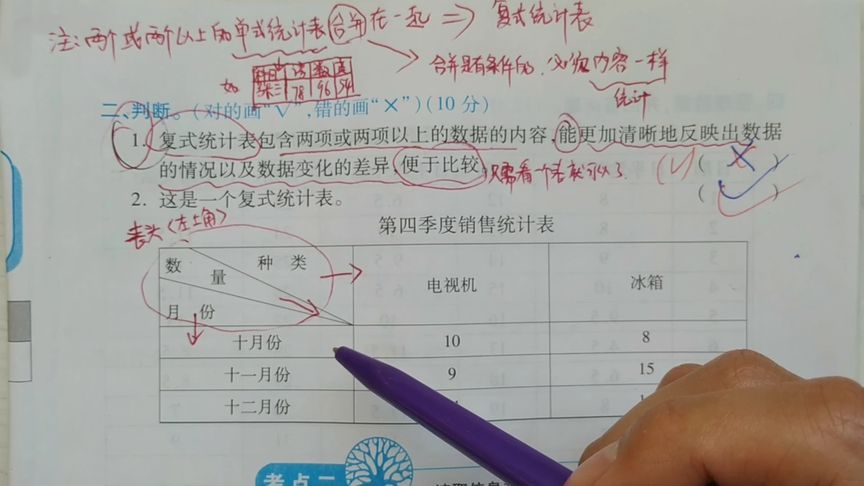 注:两个或两个以上的单式统计表合并在一起 ⇒ 复式统计表
合并是有条件的,必须内容一样
统计
如
78 96 54
二、判断。(对的画“√”,错的画“×”)(10 分)
1. 复式统计表包含两项或两项以上的数据的内容,能更加清晰地反映出数据
的情况以及数据变化的差异,便于比较。 (√) ( × )
2. 这是一个复式统计表。 ( √ )
表头(左上角)
第四季度销售统计表
数量 种类 月份 电视机 冰箱
十月份 10 8
十一月份 9 15
十二月份
考点二